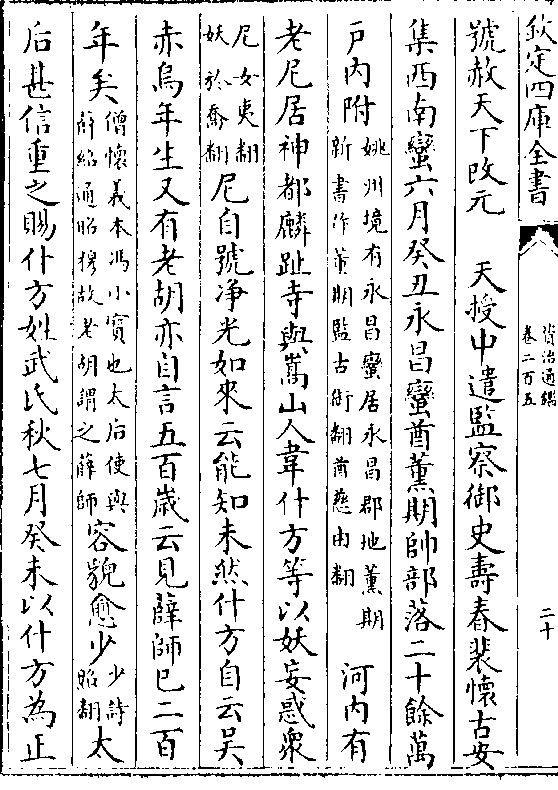 欽定四庫全書
資治通鑑
卷二百五
二十
號赦天下改元　天授中遣監察御史壽春裴懷古安
集西南蠻六月癸丑永昌蠻酋薰期帥部落二十餘萬
戸內附姚州境有永昌蠻居永昌郡地薰期
新書作董期監古衘翻酋慈由翻　河內有
老尼居神都麟趾寺與嵩山人韋什方等以妖妄惑衆
尼女夷翻
妖於喬翻尼自號淨光如來云能知未然什方自云吳
赤烏年生又有老胡亦自言五百歲云見薛師已二百
年矣僧懷義本馮小寳也太后使與
薛紹通昭穆故老胡謂之薛師容貌愈少少詩
照翻太
后甚信重之賜什方姓武氏秋七月癸未以什方為正